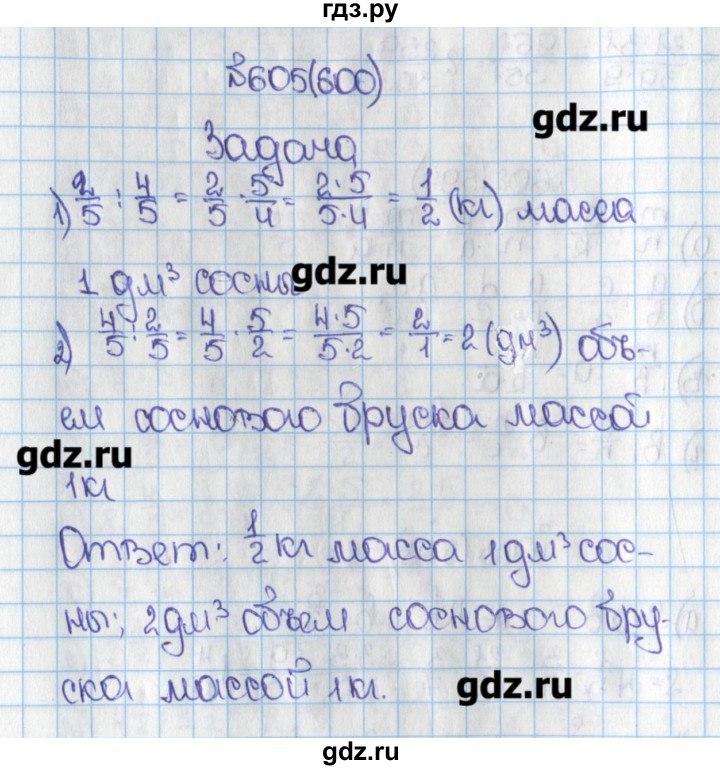 гдз.ру
№605(600)
gdz.ru
Задача
1) 2/5 : 4/5 = 2/5 · 5/4 = 2·5/5·4 = 1/2 (кг) масса
1 дм³ сосны
gdz.ru
2) 4/5 : 2/5 = 4/5 · 5/2 = 4·5/5·2 = 2/1 = 2 (дм³) объ-
ем соснового бруска массой
gdz.ru
1кг
Ответ: 1/2 кг масса 1дм³ сос-
ны; 2дм³ объем соснового бру-
ска массой 1кг.
gdz.ru
gdz.ru